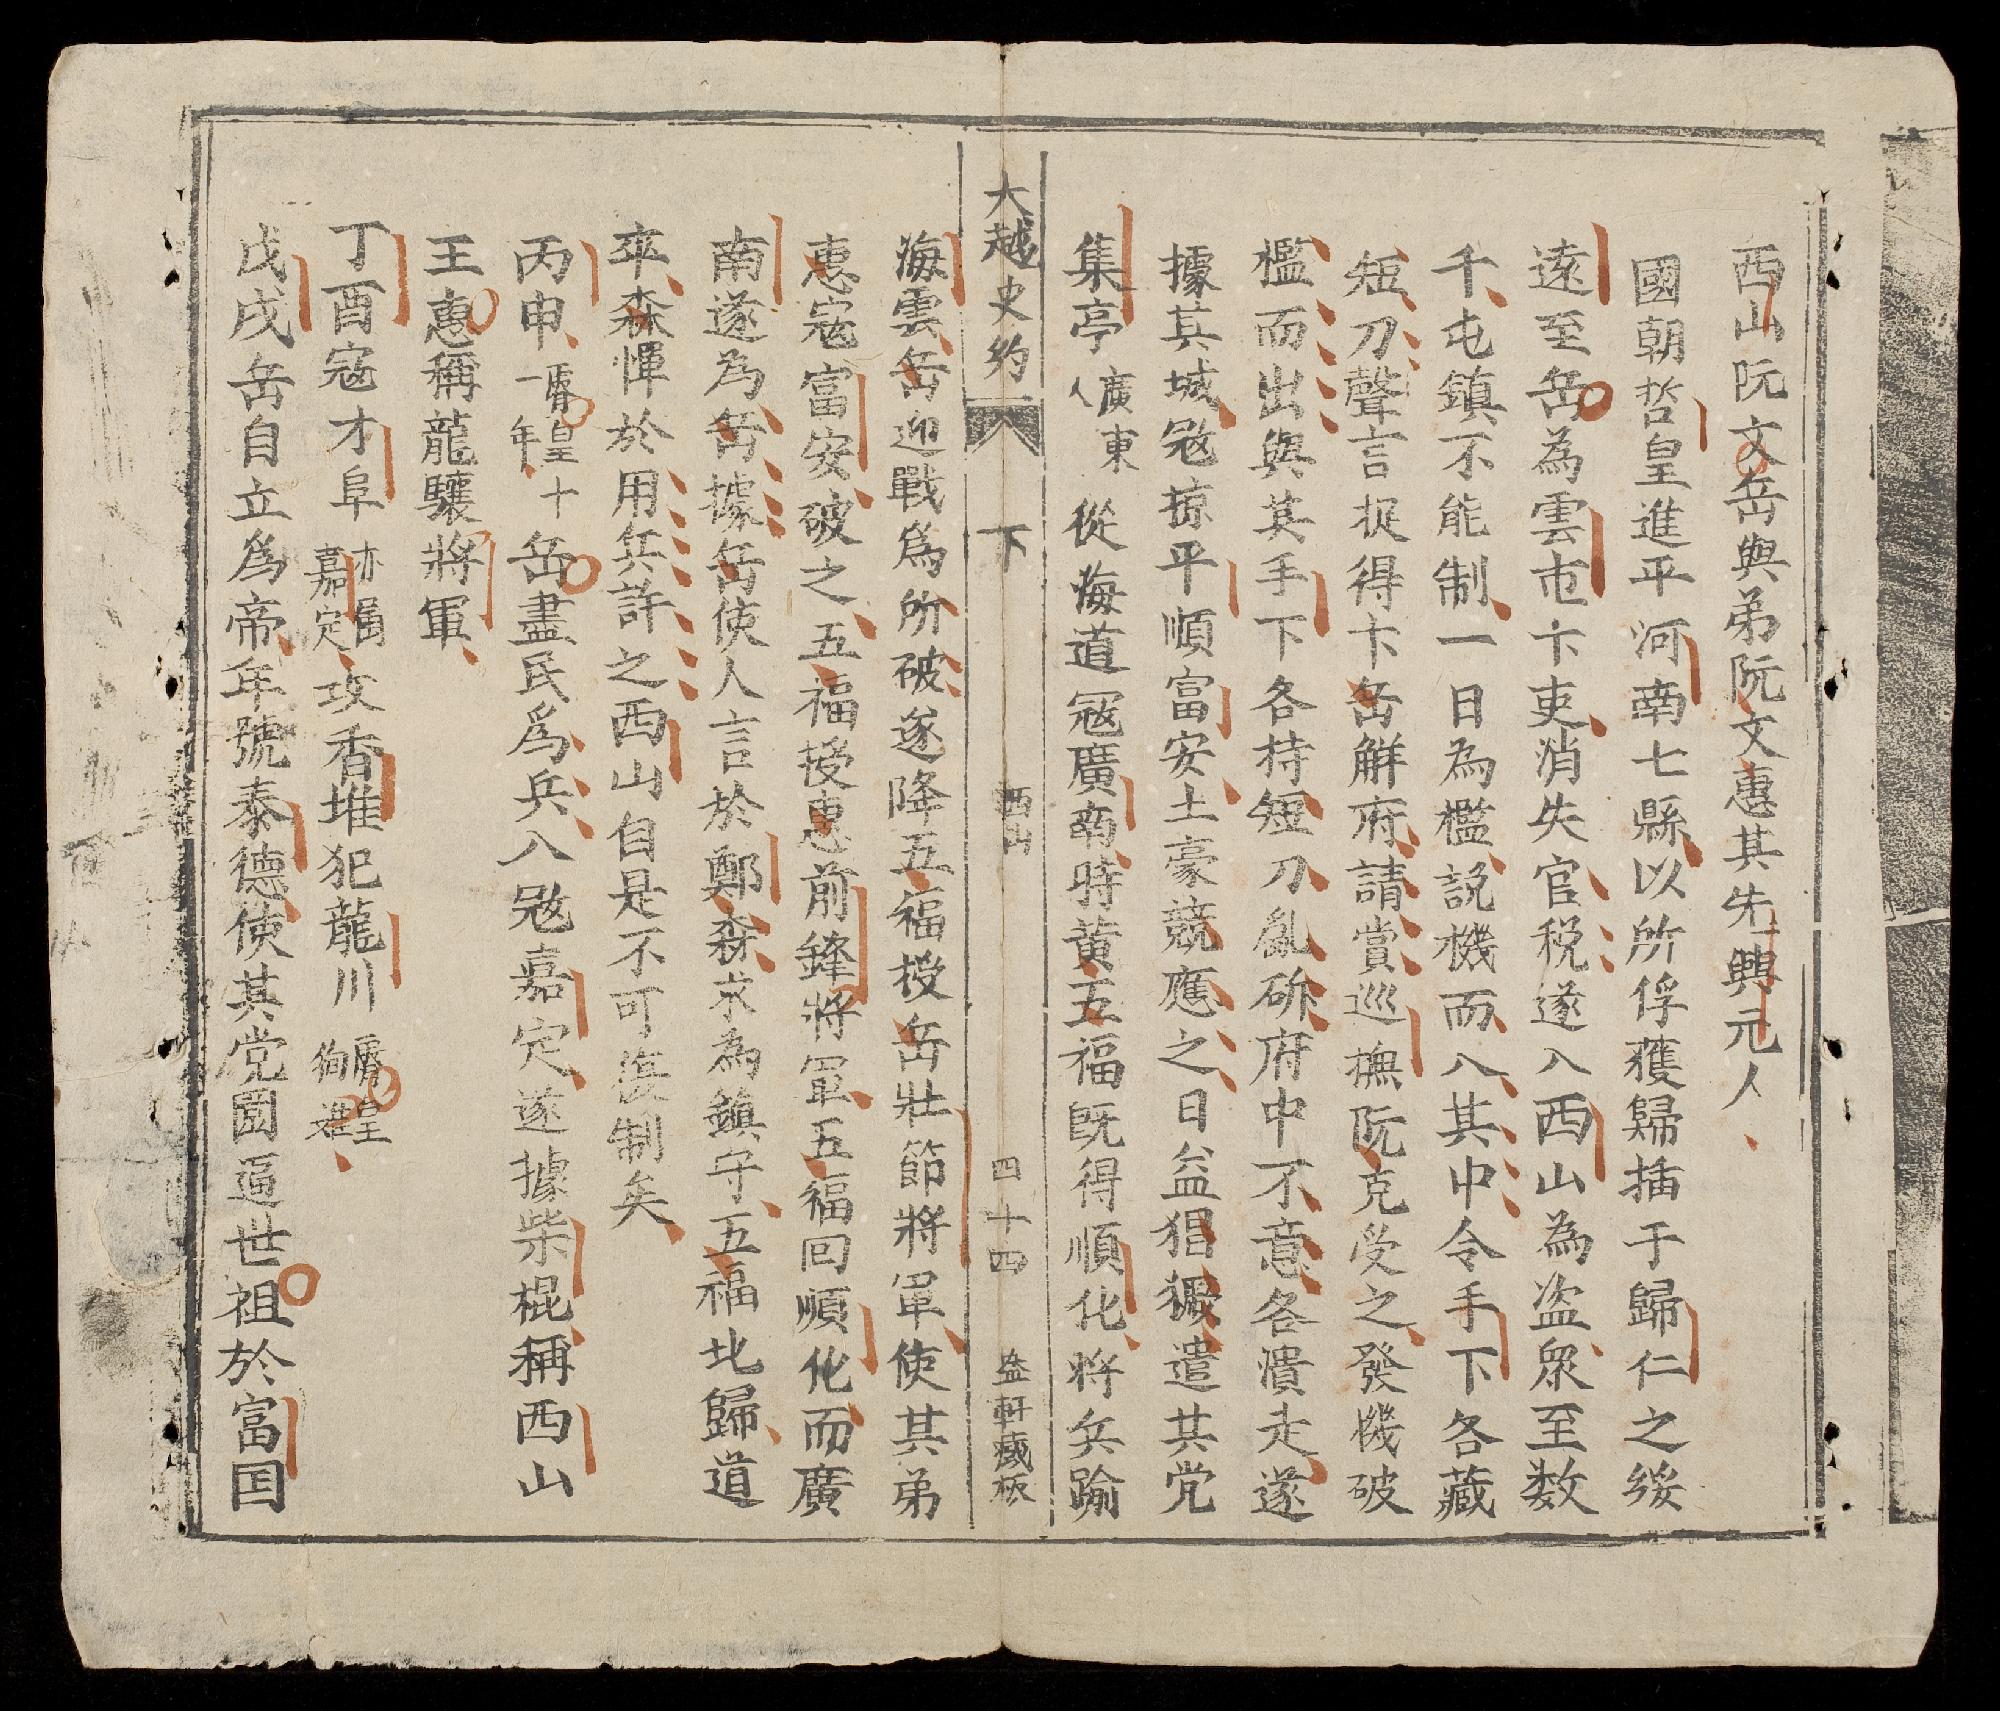 西山阮文岳與弟阮文惠其先興元人
國朝哲皇進平河南七縣以所俘獲歸插于歸仁之綏
遠至岳為雲屯卞吏消失官稅遂入西山為盗眾至数
千屯鎮不能制一日為檻設機而入其中令手下各藏
短刀聲言捉得卞岳解府請賞巡撫阮克受之發機破
檻而出與其手下各持短刀亂斫府中不意各潰走遂
據其城寇掠平順富安土豪競應之日益猖獗遣其党
集亭廣東人從海道寇廣南時黃五福既得順化將兵踰
大越史約 下 西山 四十四 益軒藏板
海雲岳迎戰爲所破遂降五福授岳壯節將軍使其弟
惠寇富安破之五福授惠前鋒將軍五福回順化而廣
南遂為岳據岳使人言於鄭森求為鎮守五福北歸道
卒森憚於用兵許之西山自是不可復制矣
丙申睿皇十一年岳盡民爲兵入寇嘉定遂據柴棍稱西山
王惠稱龍驤將軍
丁酉寇才阜亦屬嘉定攻香堆犯龍川睿皇殉難
戊戌岳自立爲帝年號泰德使其党圄逼世祖於富国